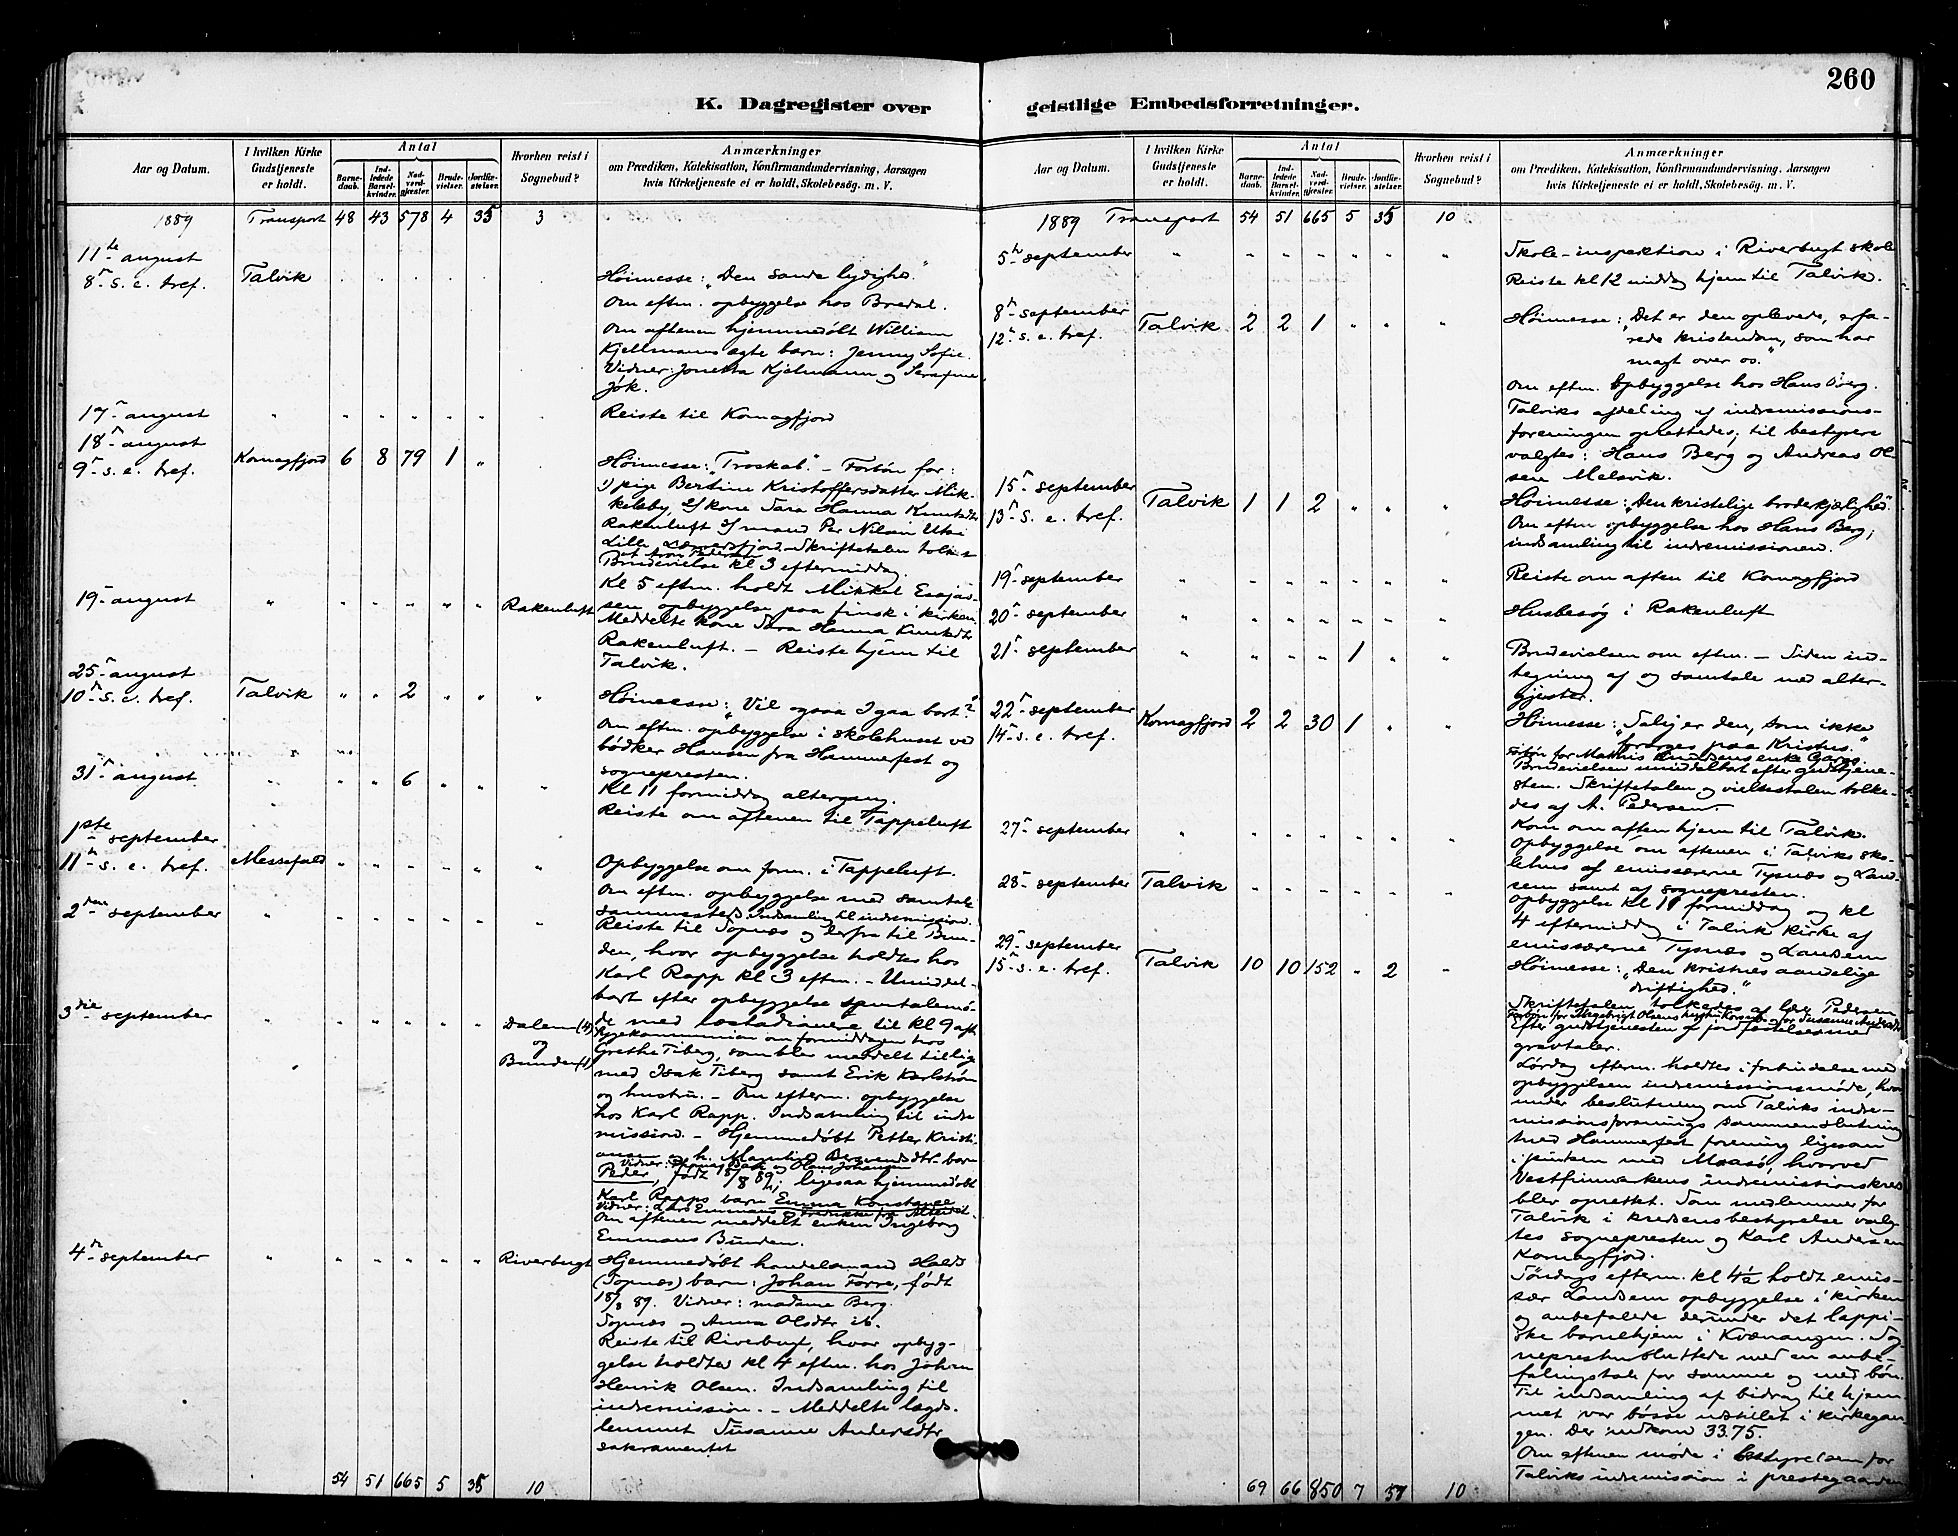 260
K. Dagregister over geistlige Embedsforretninger.
Aar og Datum.
I hvilken Kirke Gudstjeneste er holdt.
Antal
Barnedaab.
Indledede Barselkvinder.
Nadverdgjester.
Brudevielser.
Jordfæstelser.
Hvorhen reist i Sognebud?
Anmærkninger
om Prædiken, Katekisation, Konfirmandundervisning, Aarsagen
hvis Kirketjeneste ei er holdt, Skolebesøg. m. V.
1889 Transport 48 43 578 4 35 3
11te august
8de s. e. tref. Talvik
Høimesse: "Den sande lydighed."
Om eftm. opbyggelse hos Bredal.
Om aftenen hjemmedøbt William
Kjellmanns ægte barn: Jenny Sofie.
Vidner: Jonetta Kjelmann og Serafine
Jók.
17de august " " " " " "
Reiste til Komagfjord
18de august
9de s. e. tref. Komagfjord 6 8 79 1 "
Høimesse: "Troskab." - Forbøn for:
1) pige Bertine Kristoffersdatter Mik-
kelsby, 2) kone Sara Hanna Knutsdtr
Rakenluft 3) mand Per Nilsen Utsi
Lille Lærresfjord. Skriftetalen tolket
af Aron Pedersen
Brudevielse kl 3 eftermiddag.
Kl 5 eftm. holdt Mikkel Esajas-
sen opbyggelse paa finsk i kirken.
19de august " " " " " " Rakenluft
Meddelte kone Sara Hanna Knutsdtr
Rakenluft. - Reiste hjem til
Talvik.
25de august
10de s. e. tref. Talvik " " 2 " " "
Høimesse: "Vil ogsaa I gaa bort?"
Om eftm. opbyggelse i skolehuset ved
bødker Hansen fra Hammerfest og
sognepresten.
31te august " " " 6 " " "
Kl 11 formiddag altergang.
Reiste om aftenen til Tappeluft
1ste september
11te s. e. tref. Messefald " " " " " "
Opbyggelse om form. i Tappeluft.
Om eftm. opbyggelse med samtale
sammesteds. Indsamling til indremission.
2den september " " " " " " "
Reiste til Sopnæs og derfra til Bun-
den, hvor opbyggelse holdtes hos
Karl Rapp kl 3 eftm. - Umiddel-
bart efter opbyggelse samtalemø-
de med læstadianere til kl 9 aften
3die september " " " " " " Dalen (4) og Bunden (1)
Sygekommunion om formiddagen hos
Grethe Tiberg, som blev meddelt tillige
med Isak Tiberg samt Erik Karlstrøm
og hustru. - Om efterm. opbyggelse
hos Karl Rapp. Indsamling til indre
mission. - Hjemmedøbt Petter Kristi-
ansen og h. barn
Peder, født 18/8 89; ligesaa hjemmedøbt
Karl Rapps barn Emma Konstanse
Om aftenen meddelt enken Ingeborg
Emmaus Bunden.
4de september " " " " " " Riverbugt
Hjemmedøbt handelsmand Halds
(Sopnæs) barn: Johan Førre, født
18/8 89. Vidner: madame Berg.
Sopnæs og Anna Olsdtr ib.
Reiste til Riverbugt, hvor opbyg-
gelse holdtes kl 4 eftm. hos Johan
Henrik Olsen. Indsamling til
indremission. - Meddelte lægds-
lemmet Susanne Andersdtr
sakramentet
54 51 665 5 35 10
Aar og Datum.
I hvilken Kirke Gudstjeneste er holdt.
Antal
Barnedaab.
Indledede Barselkvinder.
Nadverdgjester.
Brudevielser.
Jordfæstelser.
Hvorhen reist i Sognebud?
Anmærkninger
om Prædiken, Katekisation, Konfirmandundervisning, Aarsagen
hvis Kirketjeneste ei er holdt, Skolebesøg. m. V.
1889 Transport 54 51 665 5 35 10
5te september " " " " " " "
Skole-inspektion i Riverbugt skole
Reiste kl 12 middag hjem til Talvik.
8de september
12te s. e. tref. Talvik 2 2 1 " " "
Høimesse: "Det er den oplevede, erfa-
rede kristendom, som har
magt over os."
Om eftm. opbyggelse hos Hans Berg.
Talviks afdeling af indremissions-
foreningen oprettedes; til bestyrere
valgtes: Hans Berg og Andreas Ol-
sen Melsvik.
15de september
13de s. e. tref. Talvik 1 1 2 " " "
Høimesse: "Den kristelige broderkjærlighed."
Om eftm opbyggelse hos Hans Berg;
indsamling til indremissionen.
19de september " " " " " " "
Reiste om aften til Komagfjord
20de september " " " " " " "
Husbesøg i Rakenluft
21de september " " " " 1 " "
Brudevielsen om eftm. - Siden ind-
tegning af og samtale med alter-
gjester.
22de september
14de s. e. tref. Komagfjord 2 2 30 1 " "
Høimesse: "Salig er den, som ikke
forarges paa Kristus."
Forbøn for Mathis Knudsens enke
Brudevielsen umiddelbart efter gudstjene-
sten. Skriftetalen og vielsestalen tolke-
des af A. Pedersen.
27de september " " " " " " "
Kom om aften hjem til Talvik.
Opbyggelse om aftenen i Talviks sko-
lehus af emissærerne Tysnæs og Land-
sem samt af sognepresten.
28de september Talvik " " " " " "
Opbyggelse kl 11 formiddag og kl
4 eftermiddag i Talvik kirke af
emissærerne Tysnæs og Landsem
29de september
15de s. e. tref. Talvik 10 10 152 " 2 "
Høimesse: "Den kristnes aandelige
driftighed."
Skriftetalen tolkedes af Pedersen
Efter gudstjenesten af jordfæstelse med
gravtaler.
Lørdag efterm. holdtes i forbindelse med
opbyggelsen indremissionsmøde, hvor-
under beslutning om Talviks indre-
missionsforenings sammenslutning
med Hammerfest forening ligesom
med Maasø, hvorved
Vestfinmarkens indremissionskreds
blev oprettet. Som medlemmer for
Talvik i kredsens bestyrelse valg-
tes sognepresten og Karl Andersen
Komagfjord.
Søndags efterm. kl 4½ holdt emis-
sær Landsem opbyggelse i kirken
og anbefalede derunder det lappi-
ske barnehjem i Kvænangen. Sog-
nepresten sluttede med en anbe-
falingstale for samme og med bøn.
Til indsamling af bidrag til hjem-
met var bøsse udstillet i kirkegan-
gen. Der indkom 33.75.
Om aftenen møde i bestyrelsen for
Talviks indremission i prestegaarden
69 66 850 7 37 10